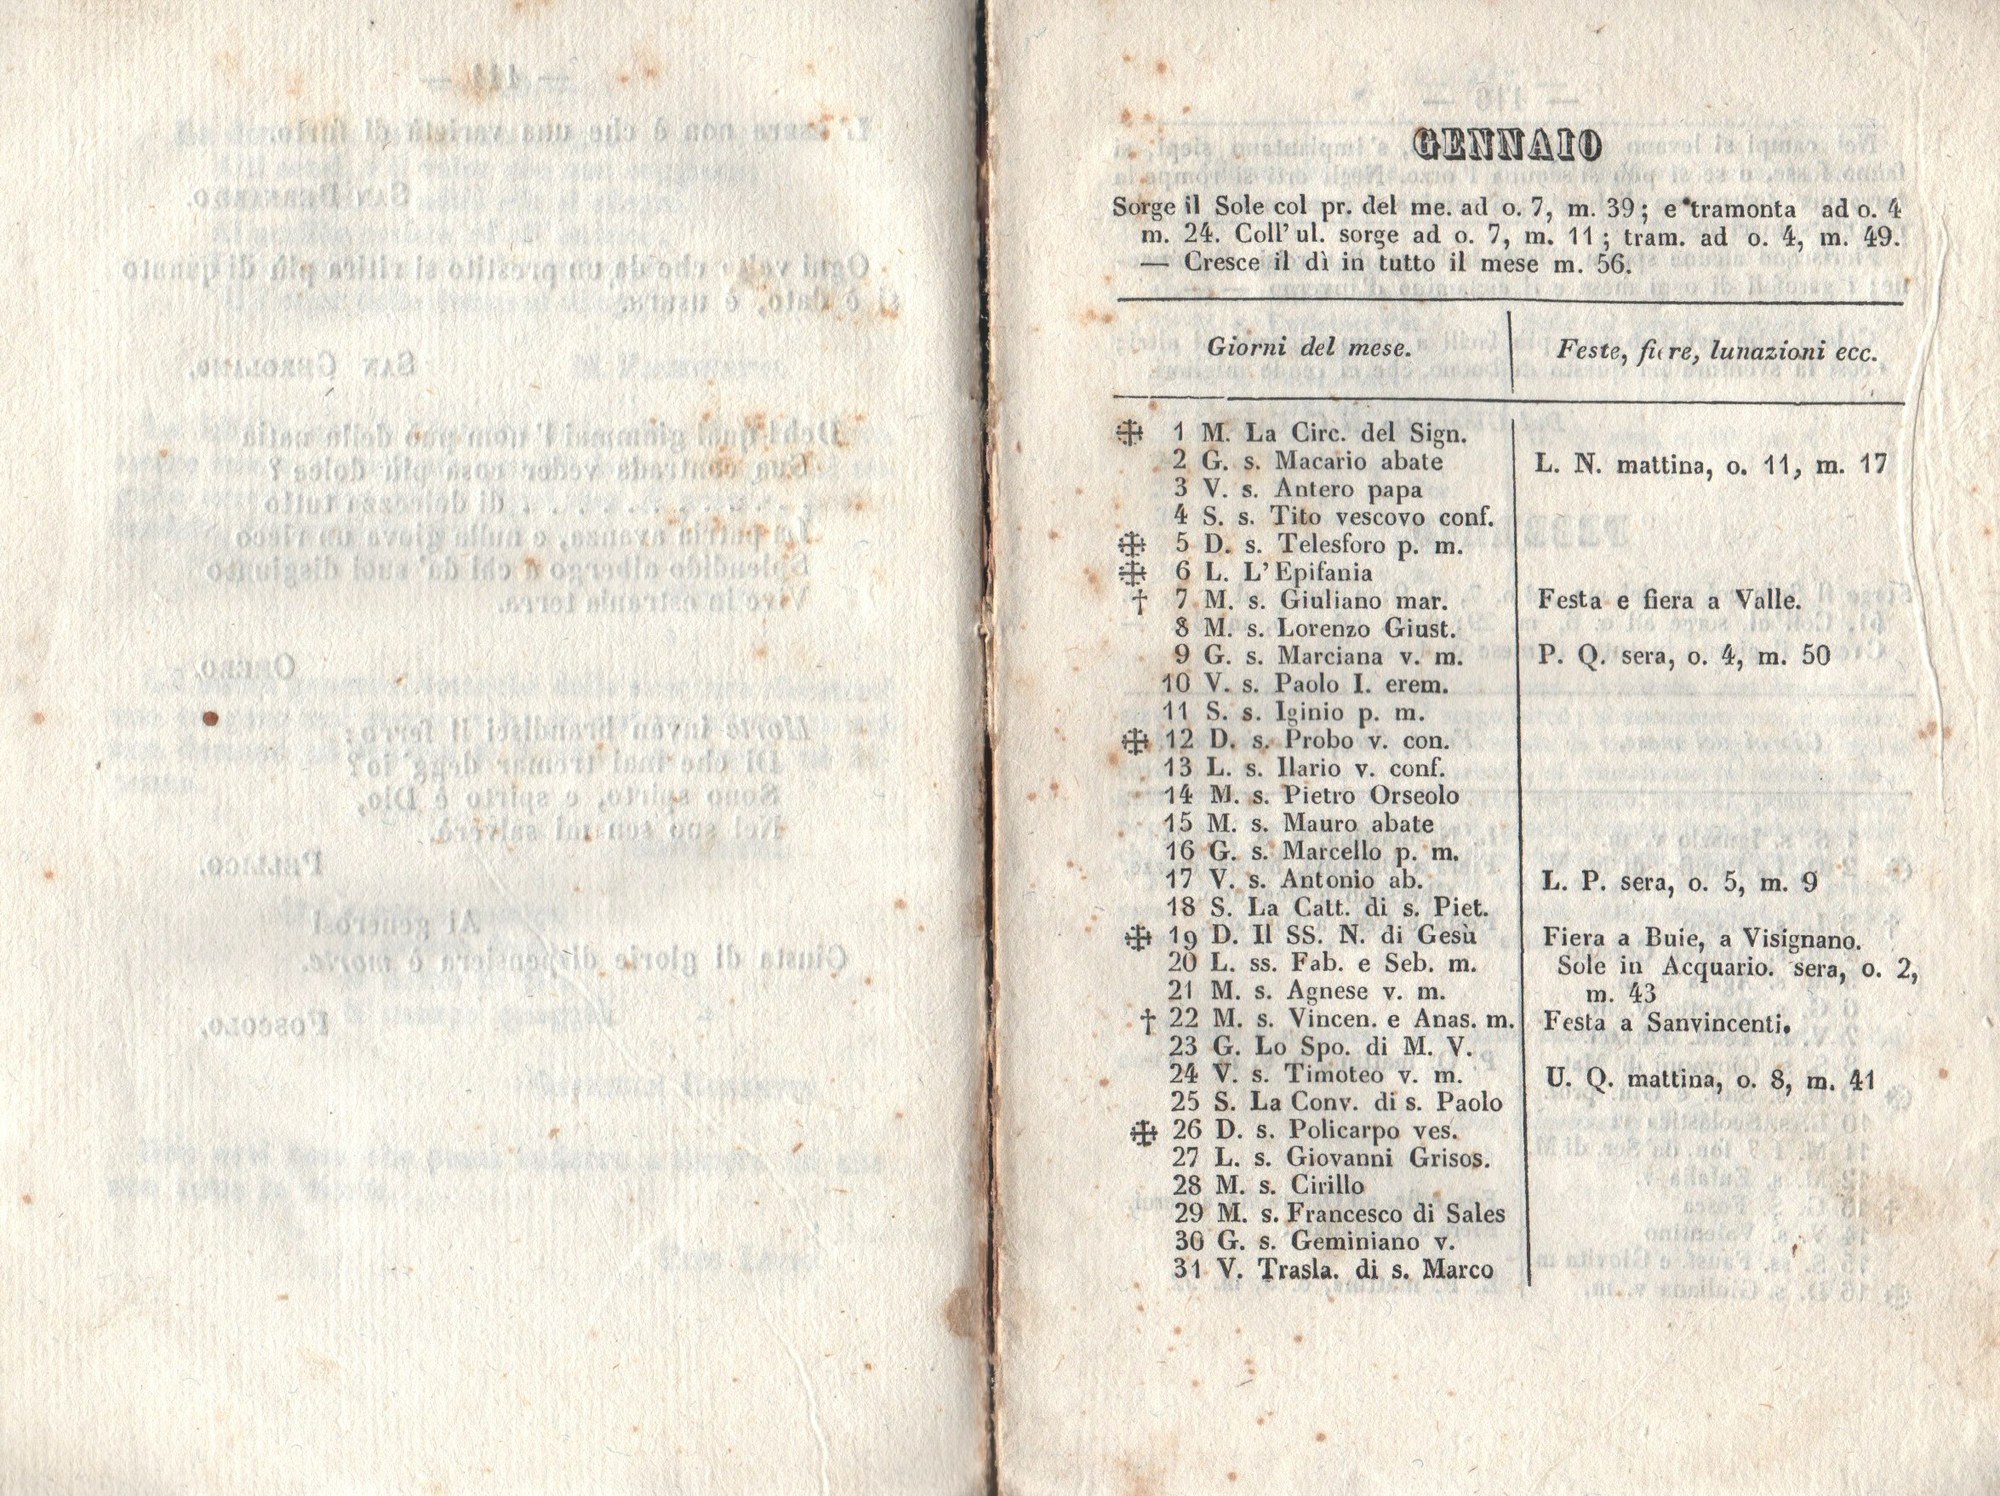 GENNAIO
Sorge il Sole col pr. del me. ad o. 7, m. 39; e tramonta ad o. 4
m. 24. Coll' ul. sorge ad o. 7, m. 11; tram. ad o. 4, m. 49.
— Cresce il dì in tutto il mese m. 56.
Giorni del mese.
Feste, fiere, lunazioni ecc.
1 M. La Circ. del Sign.
2 G. s. Macario abate
L. N. mattina, o. 11, m. 17
3 V. s. Antero papa
4 S. s. Tito vescovo conf.
5 D. s. Telesforo p. m.
6 L. L'Epifania
† 7 M. s. Giuliano mar.
Festa e fiera a Valle.
8 M. s. Lorenzo Giust.
9 G. s. Marciana v. m.
P. Q. sera, o. 4, m. 50
10 V. s. Paolo I. erem.
11 S. s. Iginio p. m.
12 D. s. Probo v. con.
13 L. s. Ilario v. conf.
14 M. s. Pietro Orseolo
15 M. s. Mauro abate
16 G. s. Marcello p. m.
17 V. s. Antonio ab.
L. P. sera, o. 5, m. 9
18 S. La Catt. di s. Piet.
19 D. Il SS. N. di Gesù
Fiera a Buie, a Visignano.
20 L. ss. Fab. e Seb. m.
Sole in Acquario. sera, o. 2,
21 M. s. Agnese v. m.
m. 43
† 22 M. s. Vincen. e Anas. m.
Festa a Sanvincenti.
23 G. Lo Spo. di M. V.
24 V. s. Timoteo v. m.
U. Q. mattina, o. 8, m. 41
25 S. La Conv. di s. Paolo
26 D. s. Policarpo ves.
27 L. s. Giovanni Grisos.
28 M. s. Cirillo
29 M. s. Francesco di Sales
30 G. s. Geminiano v.
31 V. Trasla. di s. Marco